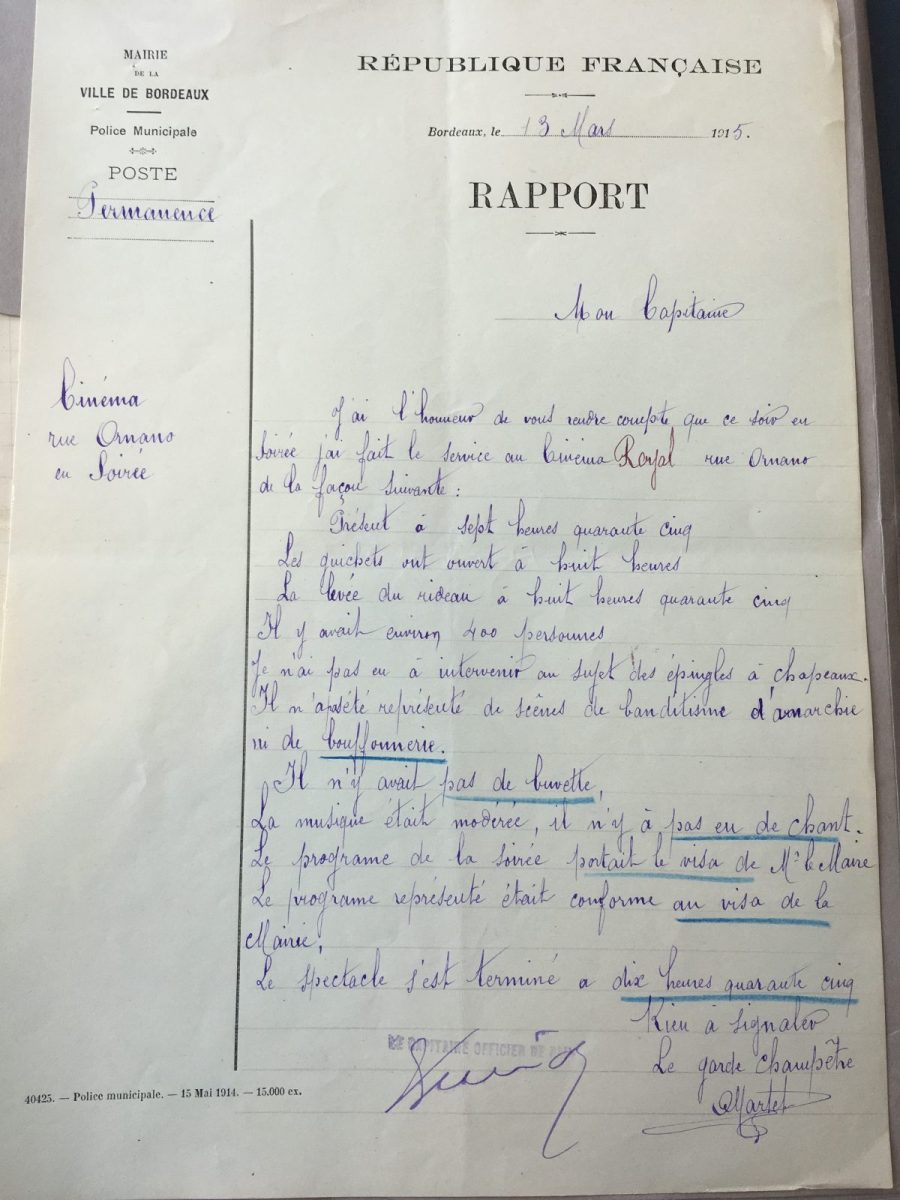 MAIRIE
DE LA
VILLE DE BORDEAUX
Police Municipale
POSTE
Permanence
RÉPUBLIQUE FRANÇAISE
Bordeaux, le 13 Mars 1915.
RAPPORT
Mon Capitaine
Cinéma
rue Ornano
en Soirée
J'ai l'honneur de vous rendre compte que ce soir en
Soirée j'ai fait le service au Cinéma Royal rue Ornano
de la façon suivante :
Présent à sept heures quarante cinq
Les guichets ont ouvert à huit heures
La levée du rideau à huit heures quarante cinq
Il y avait environ 400 personnes
Je n'ai pas eu à intervenir au sujet des épingles à chapeaux.
Il n'a pas été représenté de scènes de banditisme d'anarchie
ni de bouffonnerie.
Il n'y avait pas de buvette,
La musique était modérée, il n'y à pas eu de chant.
Le programe de la soirée portait le visa de Mr le Maire
Le programe représenté était conforme au visa de la
Mairie,
Le spectacle s'est terminé a dix heures quarante cinq
Rien à signaler
LE CAPITAINE OFFICIER DE
Le garde champêtre
Martet
40425. — Police municipale. — 15 Mai 1914. — 15.000 ex.